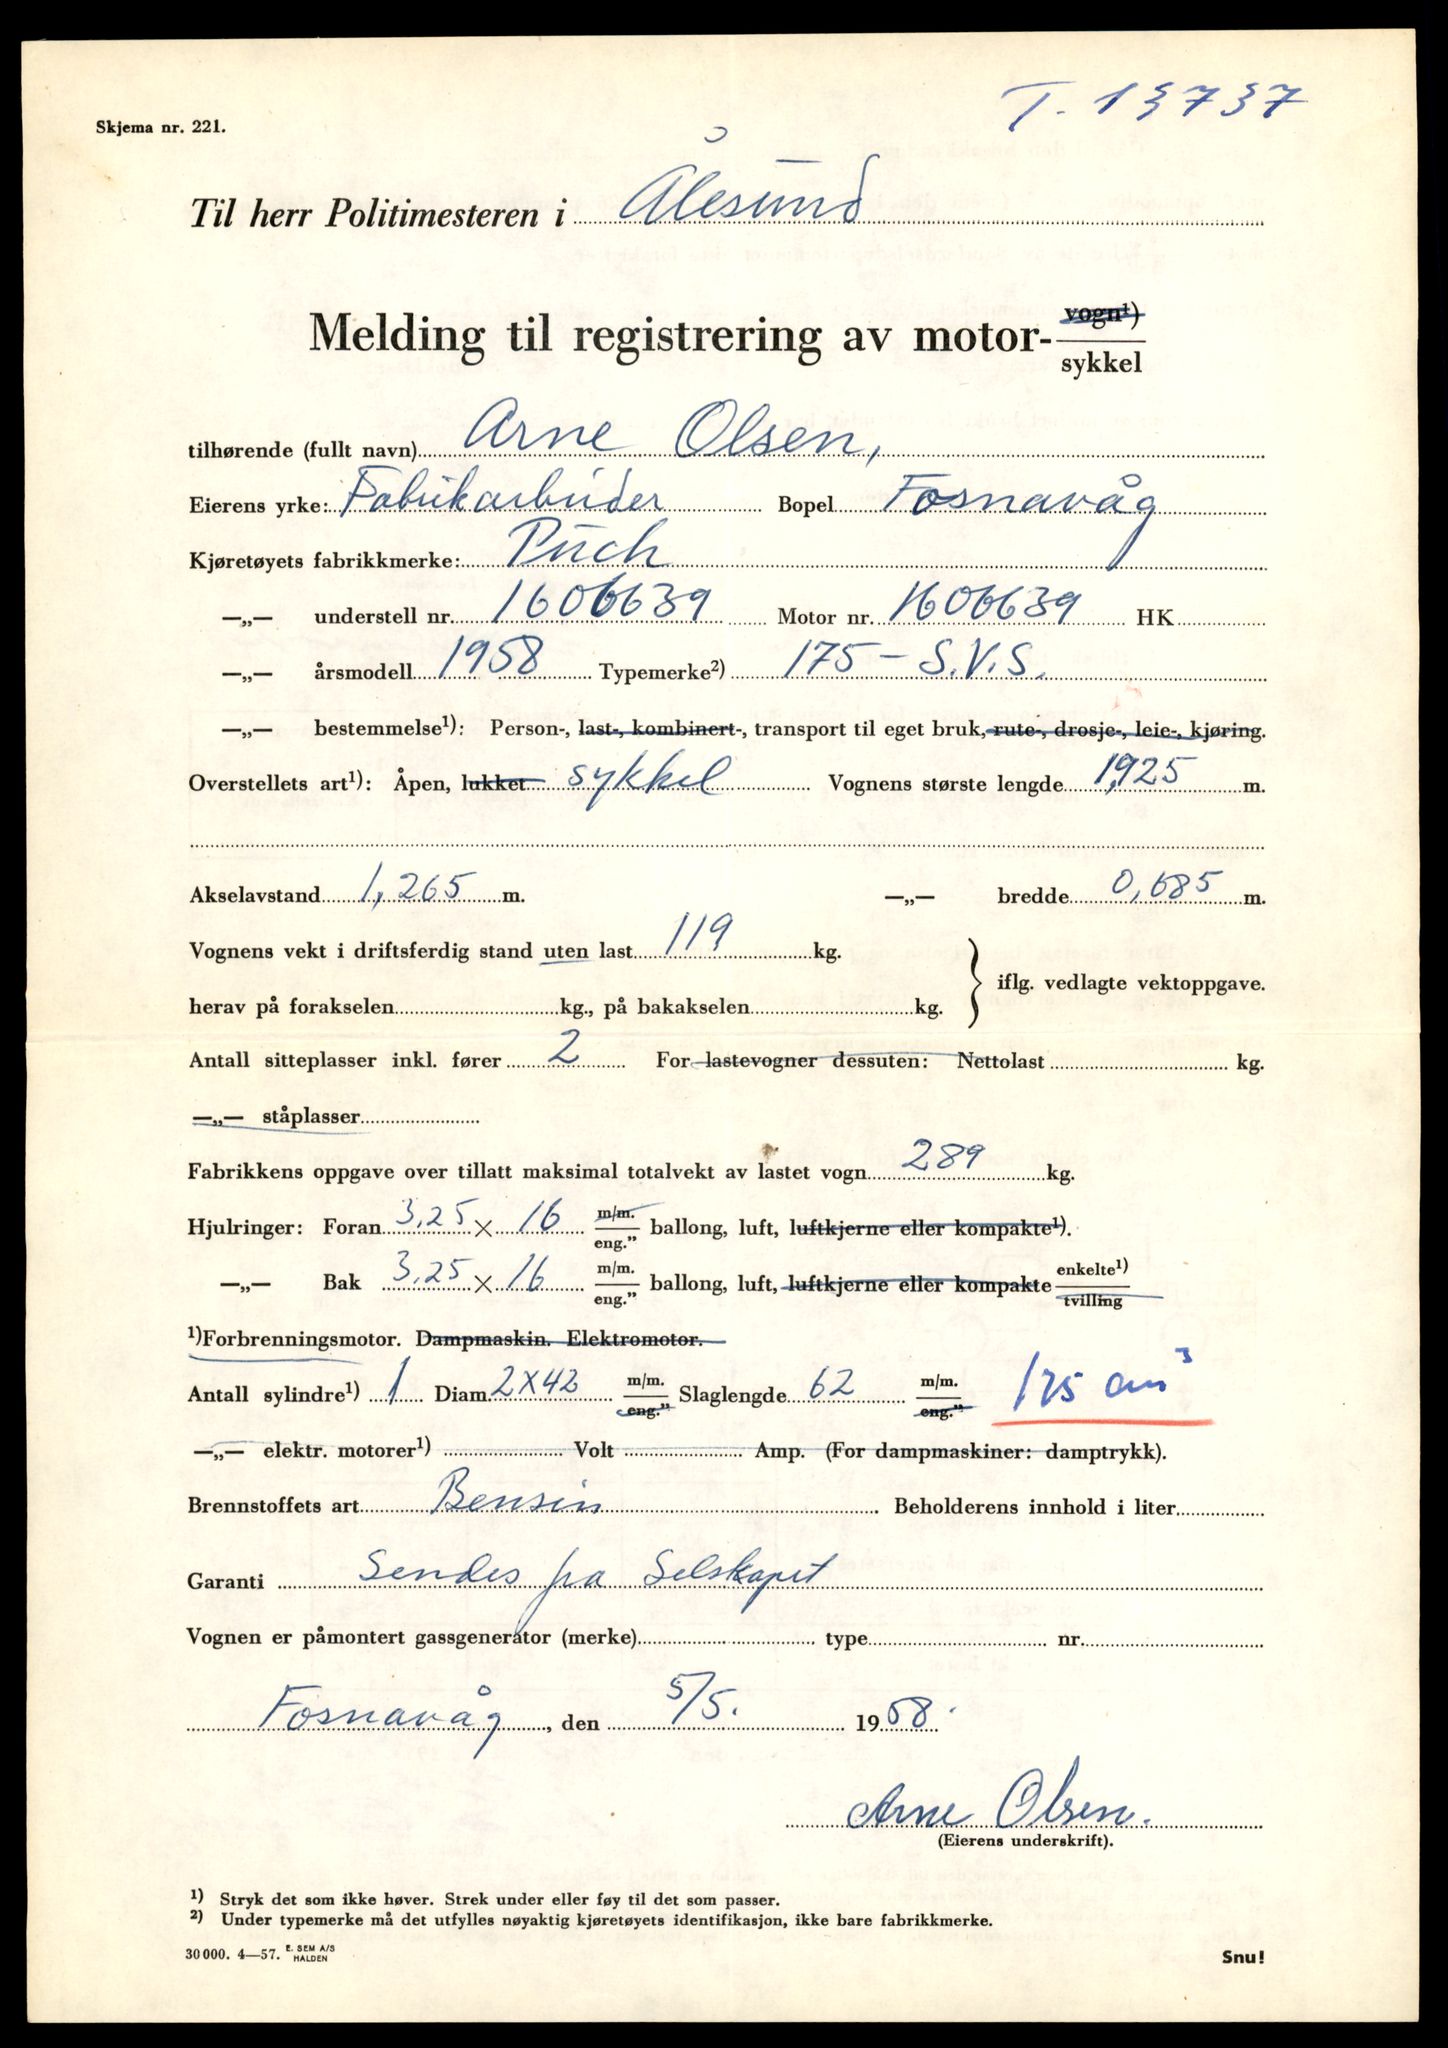 T. 13737
Skjema nr. 221.
Til herr Politimesteren i Ålesund
Melding til registrering av motor-vogn¹)
sykkel
tilhørende (fullt navn) Arne Olsen,
Eierens yrke: Fabrikarbeider Bopel Fosnavåg
Kjøretøyets fabrikkmerke: Puch
—„— understell nr. 1606639 Motor nr. 1606639 HK
—„— årsmodell 1958 Typemerke²) 175 - S.V.S.
—„— bestemmelse¹): Person-, last-, kombinert-, transport til eget bruk, rute-, drosje-, leie-, kjøring.
Overstellets art¹): Åpen, lukket sykkel Vognens største lengde 1,925 m.
Akselavstand 1,265 m. —„— bredde 0,685 m.
Vognens vekt i driftsferdig stand uten last 119 kg.
herav på forakselen kg., på bakakselen kg. } iflg. vedlagte vektoppgave.
Antall sitteplasser inkl. fører 2 For lastevogner dessuten: Nettolast kg.
—„— ståplasser
Fabrikkens oppgave over tillatt maksimal totalvekt av lastet vogn 289 kg.
Hjulringer: Foran 3,25 × 16 m/m. eng." ballong, luft, luftkjerne eller kompakte¹).
—„— Bak 3,25 × 16 m/m. eng." ballong, luft, luftkjerne eller kompakte enkelte¹) tvilling
¹)Forbrenningsmotor. Dampmaskin. Elektromotor.
Antall sylindre¹) 1 Diam. 2x42 m/m. eng." Slaglengde 62 m/m. eng." 175 cm³
—„— elektr. motorer¹) Volt Amp. (For dampmaskiner: damptrykk).
Brennstoffets art Bensin Beholderens innhold i liter
Garanti Sendes fra Selskapet
Vognen er påmontert gassgenerator (merke) type nr.
Fosnavåg, den 5/5. 1958.
Arne Olsen.
(Eierens underskrift).
¹) Stryk det som ikke høver. Strek under eller føy til det som passer.
²) Under typemerke må det utfylles nøyaktig kjøretøyets identifikasjon, ikke bare fabrikkmerke.
30 000. 4—57. E. SEM A/S HALDEN Snu!